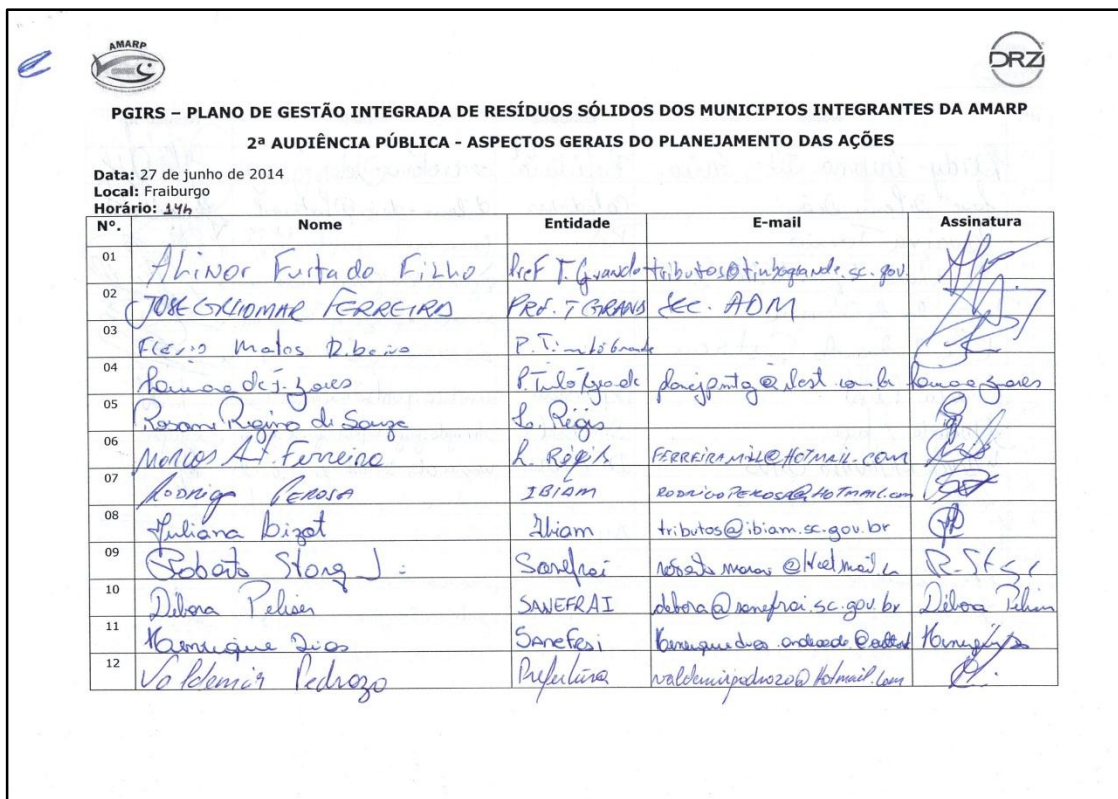 AMARP
DRZ
PGIRS – PLANO DE GESTÃO INTEGRADA DE RESÍDUOS SÓLIDOS DOS MUNICIPIOS INTEGRANTES DA AMARP
2ª AUDIÊNCIA PÚBLICA - ASPECTOS GERAIS DO PLANEJAMENTO DAS AÇÕES
Data: 27 de junho de 2014
Local: Fraiburgo
Horário: 14h
Nº. Nome Entidade E-mail Assinatura
01 Alinor Furtado Filho Pref T. Grande tributos@timbogrande.sc.gov.
02 JOSE GILIOMAR FERREIRA PREF. T GRAND SEC. ADM
03 Flávio Matos Ribeiro P. Timbó Grande
04 P. Timbó Grande
05 Rosani Regina de Souza L. Régis
06 Marcos At. Ferreira L. Régis FERREIRAMIL@HOTMAIL.COM
07 Rodrigo PEROSA IBIAM RODRIGOPEROSA@HOTMAIL.com
08 Juliana Bizot Ibiam tributos@ibiam.sc.gov.br
09 Roberto Sanefrai
10 Débora Pelisser SANEFRAI debora@sanefrai.sc.gov.br Débora
11 Henrique Dias Sanefrai
12 Valdemir Pedrozo Prefeitura valdemirpedrozo@hotmail.com